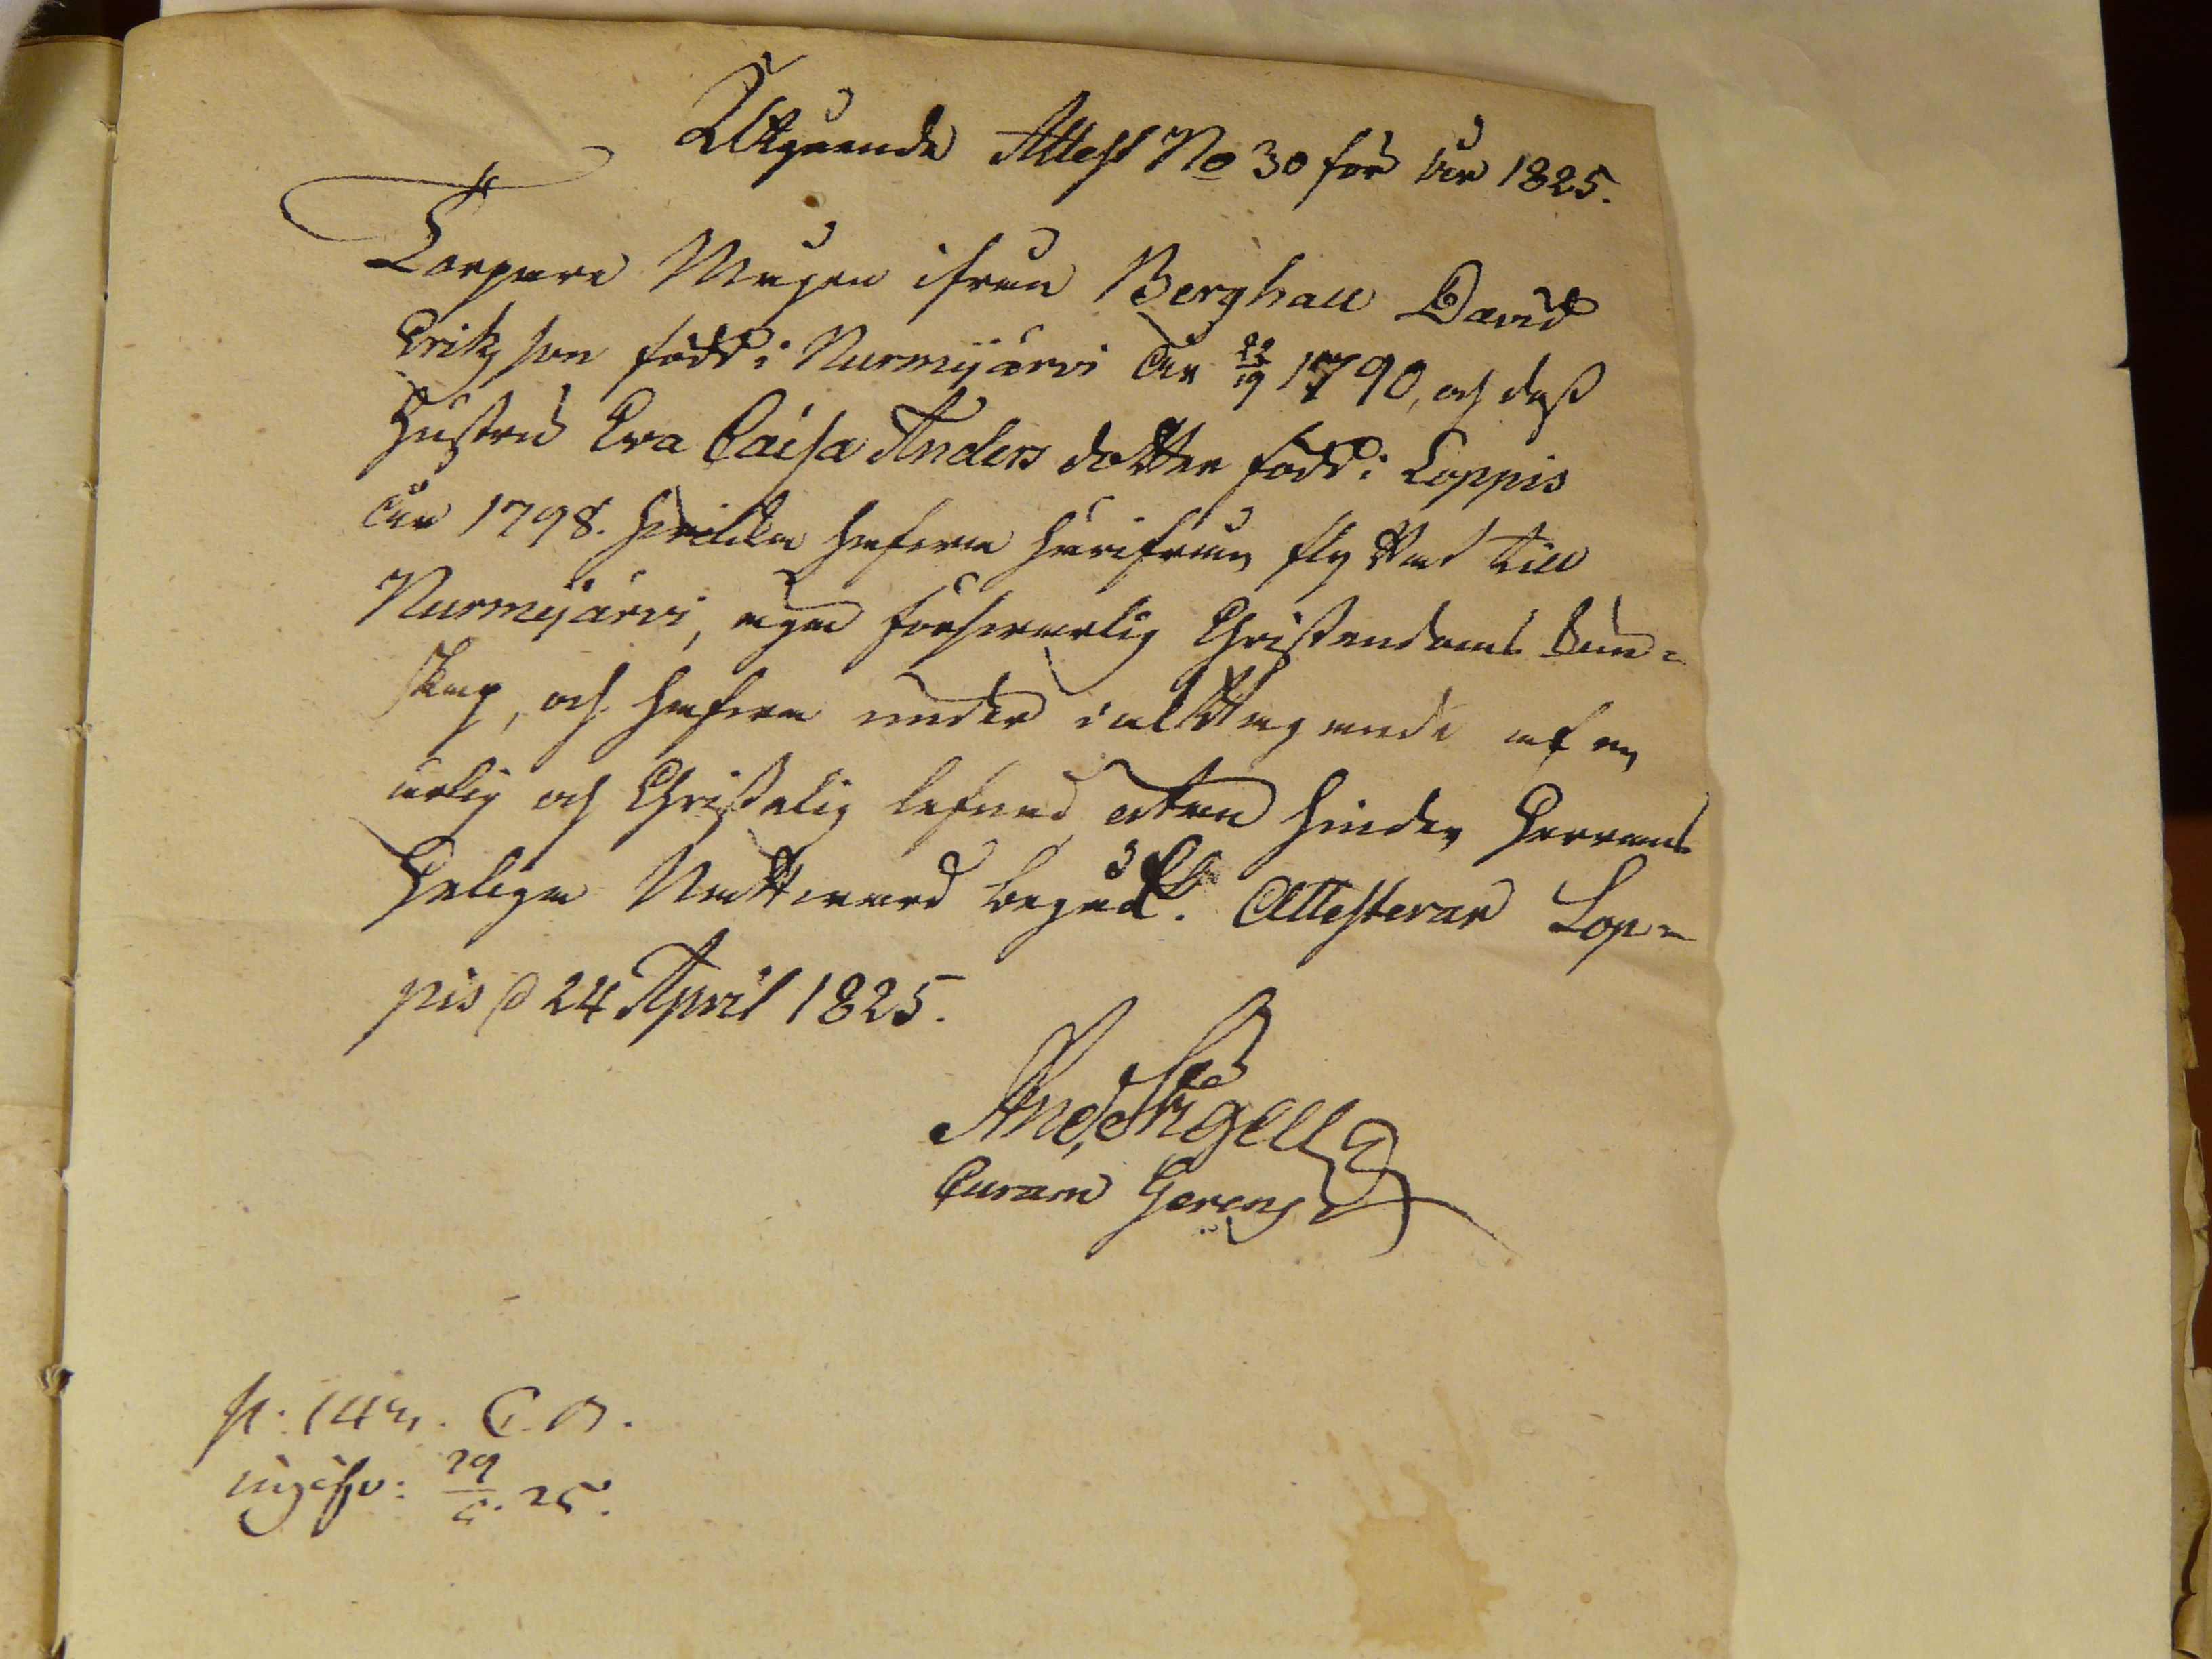 Utgående Attest No 30 för år 1825.
Torpare Mågen ifrån Berghall David
Erikzson född i Nurmijärvi den 22/19 1790, och dess
Hustru Eva Caisa Anders dotter född i Loppis
år 1798. hvilka hafwa härifrån flyttat till
Nurmijärvi, äga försvarlig Christendoms kun-
skap, och hafwa under iakttagande af en
ärlig och Christelig lefnad utan hinder Herrans
Heliga Nattward begådt. Attesterar Lop-
pis d 24 April 1825.
And. Engell
Curam Gerens
p: 142. C.B.
ingifv: 29/5. 25.